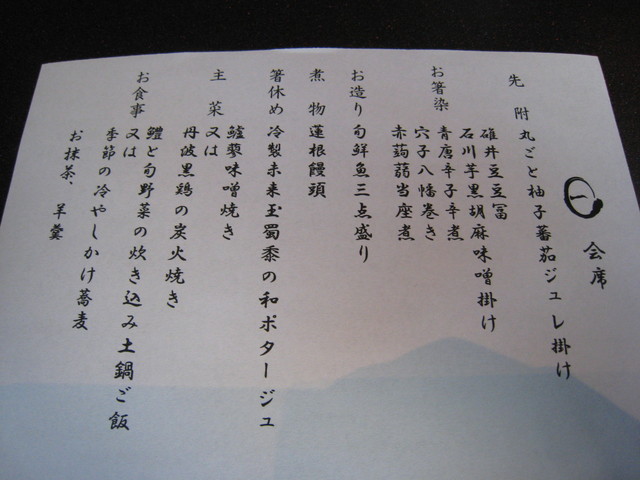 一 会席
先 附 丸ごと柚子蕃茄ジュレ掛け
お箸染 碓井豆豆冨
石川芋黒胡麻味噌掛け
青唐辛子辛煮
穴子八幡巻き
赤蒟蒻当座煮
お造り 旬鮮魚三点盛り
煮 物 蓮根饅頭
箸休め 冷製未来玉蜀黍の和ポタージュ
主 菜 鱸蓼味噌焼き
又は
丹波黒鶏の炭火焼き
お食事 鱧と旬野菜の炊き込み土鍋ご飯
又は
季節の冷やしかけ蕎麦
お抹茶、羊羹